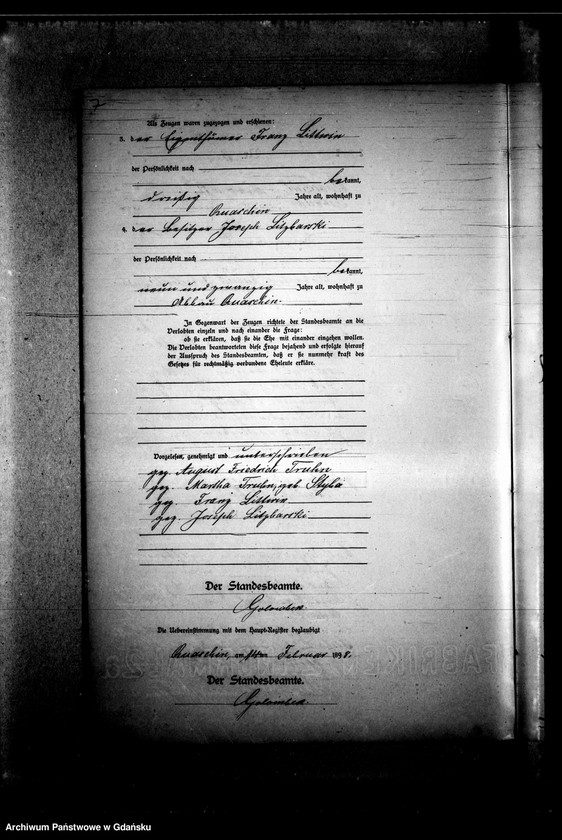 Als Zeugen waren zugezogen und erschienen:
3. der Eigenthümer Franz Littwin
der Persönlichkeit nach
bekannt,
dreißig Jahre alt, wohnhaft zu
Quaschin
4. der Besitzer Joseph Litzbarski
der Persönlichkeit nach
bekannt,
neun und zwanzig Jahre alt, wohnhaft zu
Abbau Quaschin.
In Gegenwart der Zeugen richtete der Standesbeamte an die
Verlobten einzeln und nach einander die Frage:
ob sie erklären, daß sie die Ehe mit einander eingehen wollen.
Die Verlobten beantworteten diese Frage bejahend und erfolgte hierauf
der Ausspruch des Standesbeamten, daß er sie nunmehr kraft des
Gesetzes für rechtmäßig verbundene Eheleute erkläre.
Vorgelesen, genehmigt und unterschrieben
gez. August Friedrich Truhn
gez. Martha Truhn, geb Styba
gez. Franz Littwin
gez. Joseph Litzbarski
Der Standesbeamte.
Golombek
Die Uebereinstimmung mit dem Haupt-Register beglaubigt
Quaschin, am 14ten Februar 8.
Der Standesbeamte.
Golombek.
Archiwum Państwowe w Gdańsku